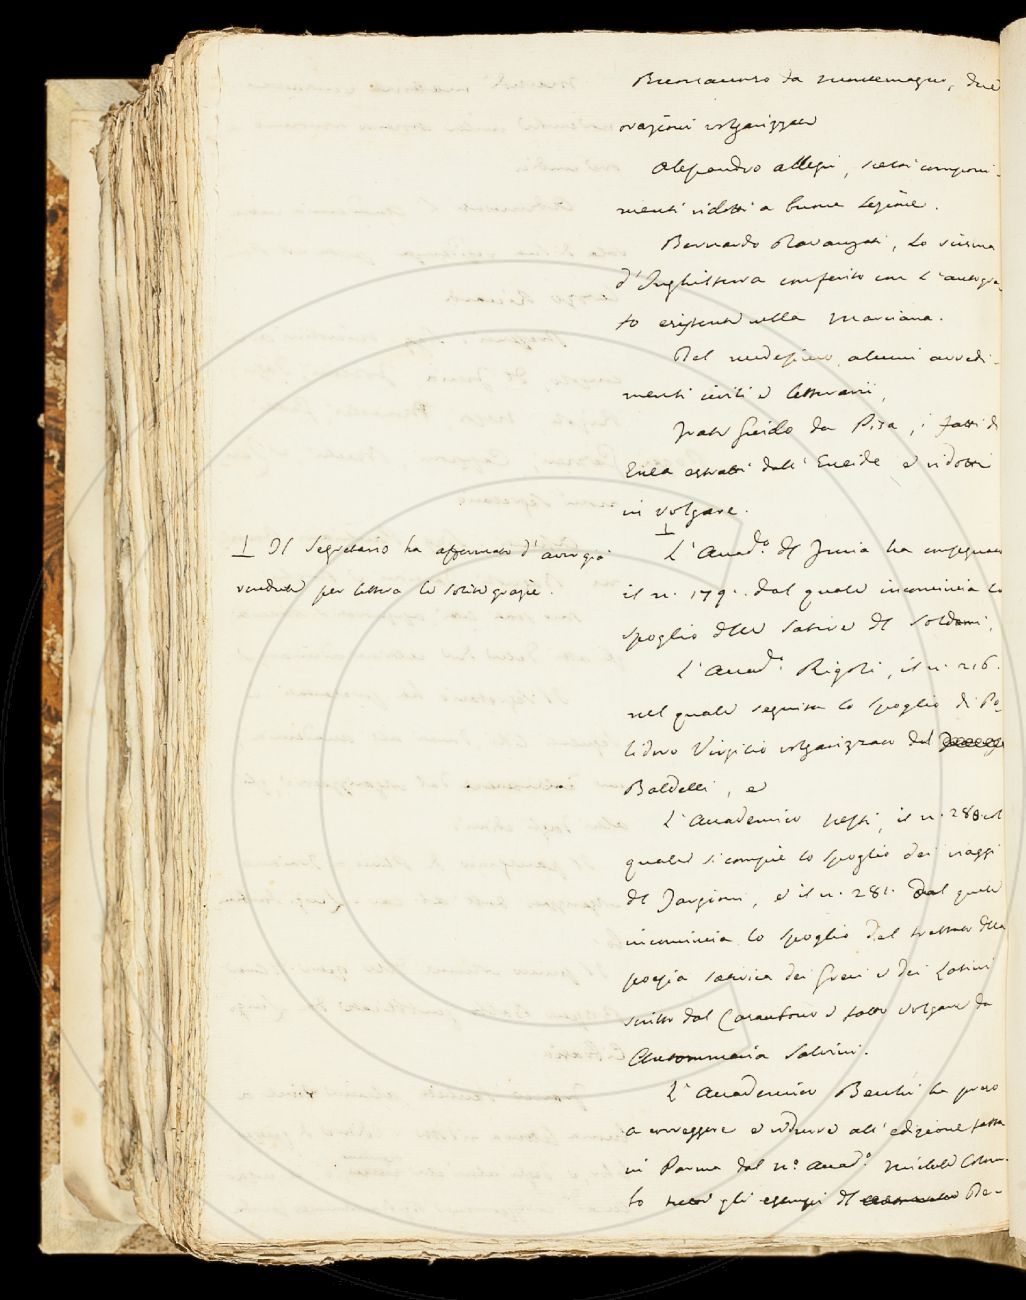 Buonaccorso da Montemagno, due
orazioni volgarizzate
Alessandro Allegri, scelti componi-
menti ridotti a buona lezione.
Bernardo Davanzati, Lo scisma
d'Inghilterra conferito con l'autogra-
fo esistente nella Marciana.
Del medesimo, alcuni avvedi-
menti civili e letterarii,
Frate Guido da Pisa, i fatti di
Enea estratti dall'Eneide e ridotti
in volgare.
⊥ L'Accad.o del Furia ha consegnato
il n. 179. dal quale incomincia lo
spoglio delle Satire del Soldani,
L'Accad. Rigoli, il n. 216.
nel quale seguita lo spoglio di Po-
lidoro Virgilio volgarizzato dal
Baldelli, e
L'Accademico il n. 280. col
quale si compie lo spoglio dei viaggi
del Targioni, e il n. 281. dal quale
incomincia lo spoglio del trattato della
poesia satirica dei Greci e dei Latini
scritto dal Casaubono e fatto volgare da
Antommaria Salvini.
L'Accademico Bencini ha preso
a correggere e ridurre all'edizione fatta
in Parma dal n.o Accad.o Michele Colom-
bo gli esempi del De-
⊥ Il Segretario ha affermato d'aver già
rendute per lettera le solite grazie.